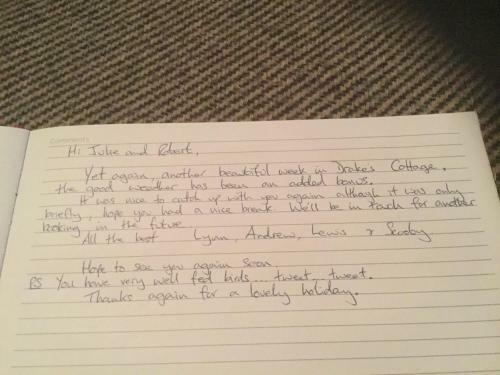 Comments
Hi Julie and Robert,
Yet again, another beautiful week in Drake's Cottage,
the good weather has been an added bonus.
It was nice to catch up with you again although it was only
briefly, hope you had a nice break. We'll be in touch for another
booking in the future
All the best Lynn, Andrew, Lewis & Scooby
Hope to see you again soon
PS You have very well fed birds... tweet... tweet.
Thanks again for a lovely holiday.